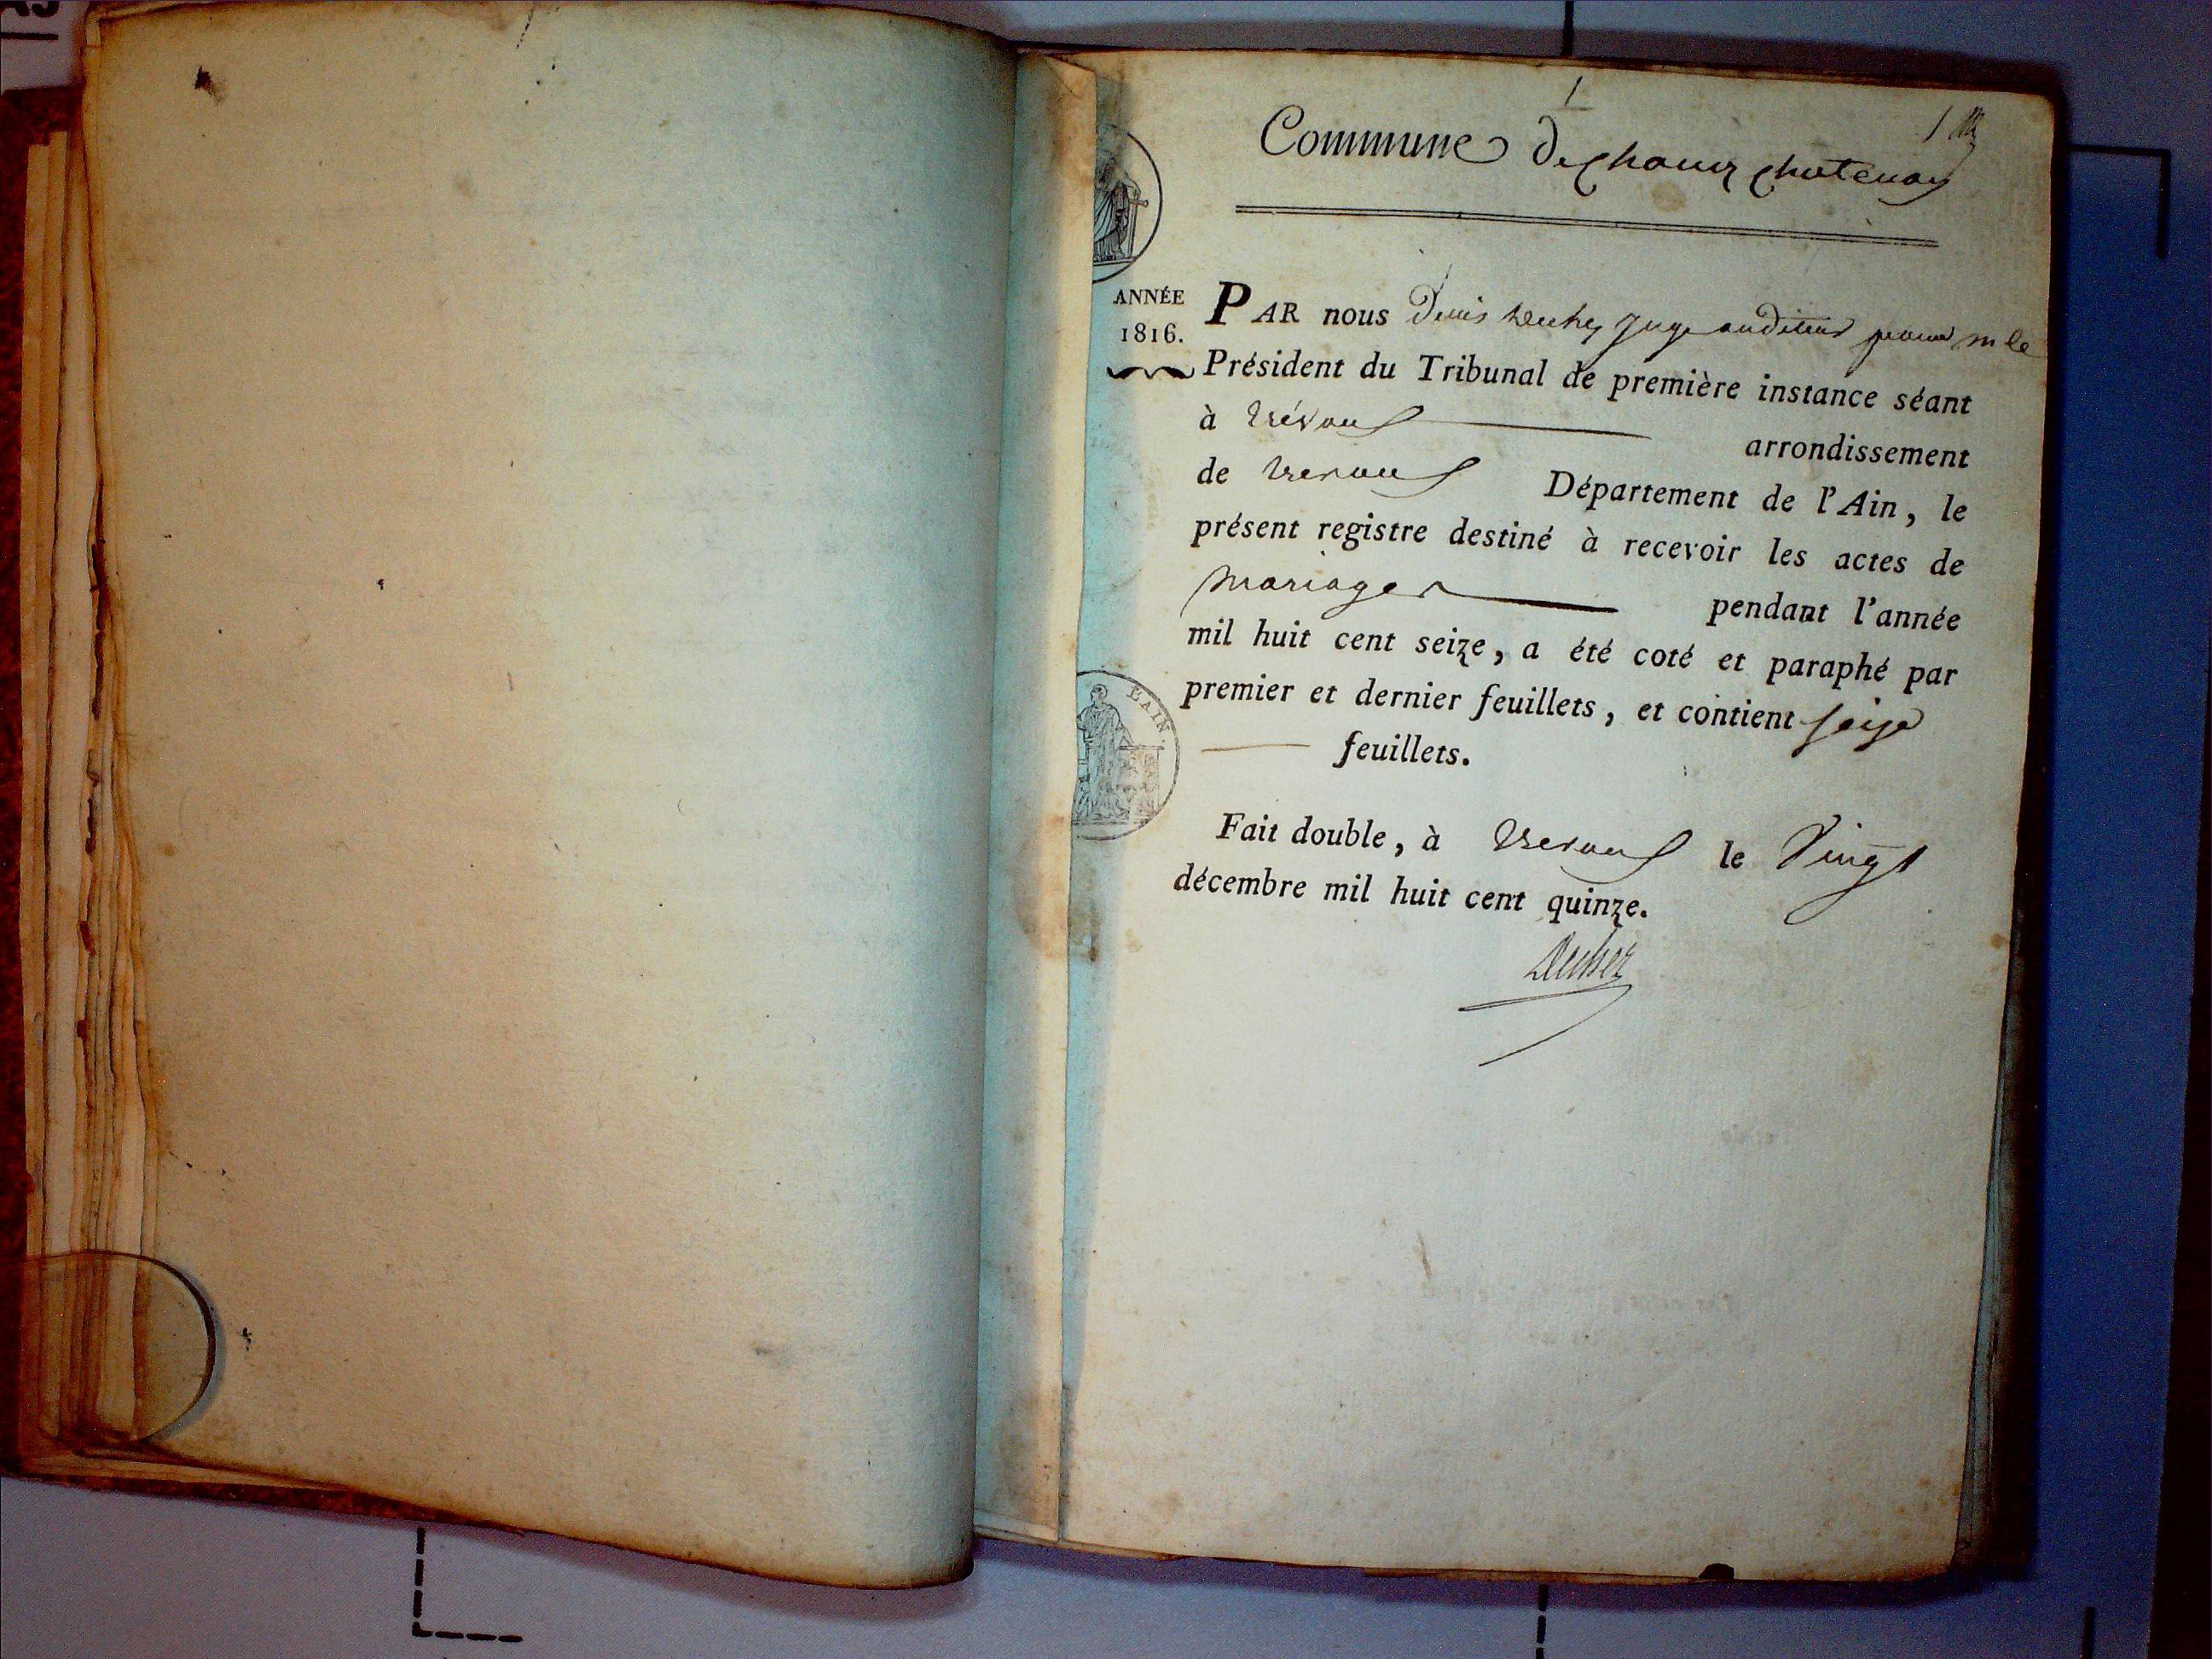 1
Commune de chaux chatenay
ANNÉE
1816.
PAR nous Denis juge auditeur pour m le
Président du Tribunal de première instance séant
à trévoux arrondissement
de trevoux Département de l'Ain, le
présent registre destiné à recevoir les actes de
mariages pendant l'année
mil huit cent seize, a été coté et paraphé par
premier et dernier feuillets, et contient seize
feuillets.
Fait double, à trevoux le vingt
décembre mil huit cent quinze.